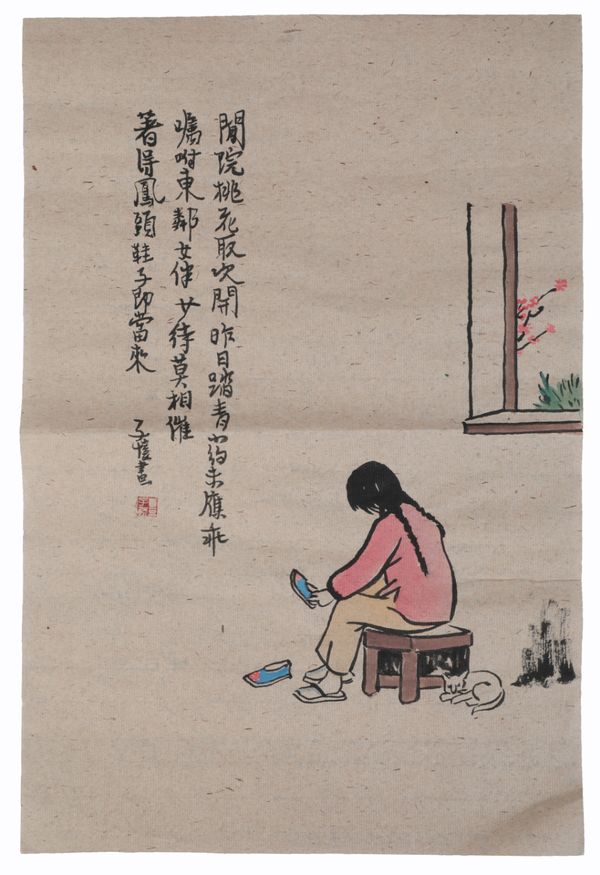 閒院桃花取次開昨日踏青小約未應乖
囑咐東鄰女伴少待莫相催
著得鳳頭鞋子即當來
子愷畫